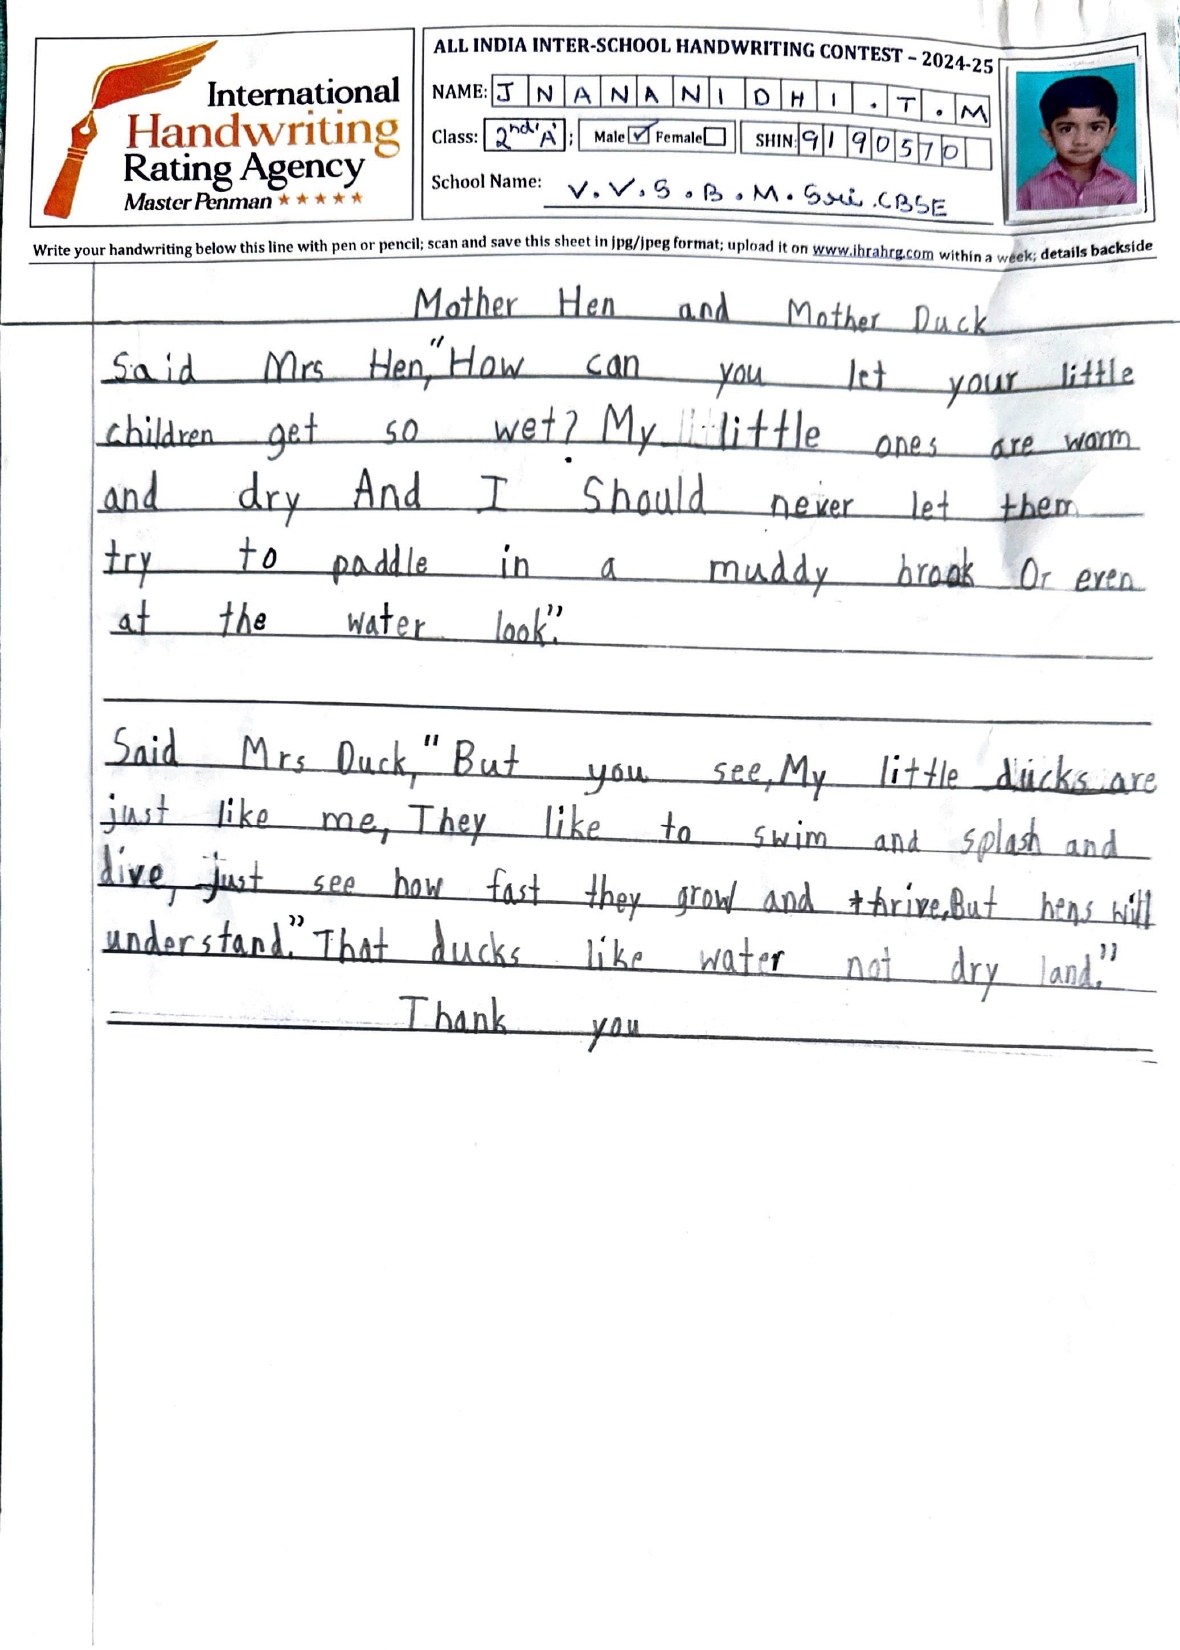 International
Handwriting
Rating Agency
Master Penman ★★★★★
ALL INDIA INTER-SCHOOL HANDWRITING CONTEST – 2024-25
NAME: JNANANIDHI.T.M
Class: 2nd 'A'; Male ☑ Female ☐ SHIN: 9190570
School Name: V.V.S.B.M. Sri. CBSE
Write your handwriting below this line with pen or pencil; scan and save this sheet in jpg/jpeg format; upload it on www.ihrahrg.com within a week; details backside
Mother Hen and Mother Duck
Said Mrs Hen, "How can you let your little
children get so wet? My little ones are warm
and dry And I Should never let them
try to paddle in a muddy brook Or even
at the water look".
Said Mrs Duck, "But you see, My little ducks are
just like me, They like to swim and splash and
dive, just see how fast they grow and thrive, But hens will
understand." That ducks like water not dry land."
Thank you